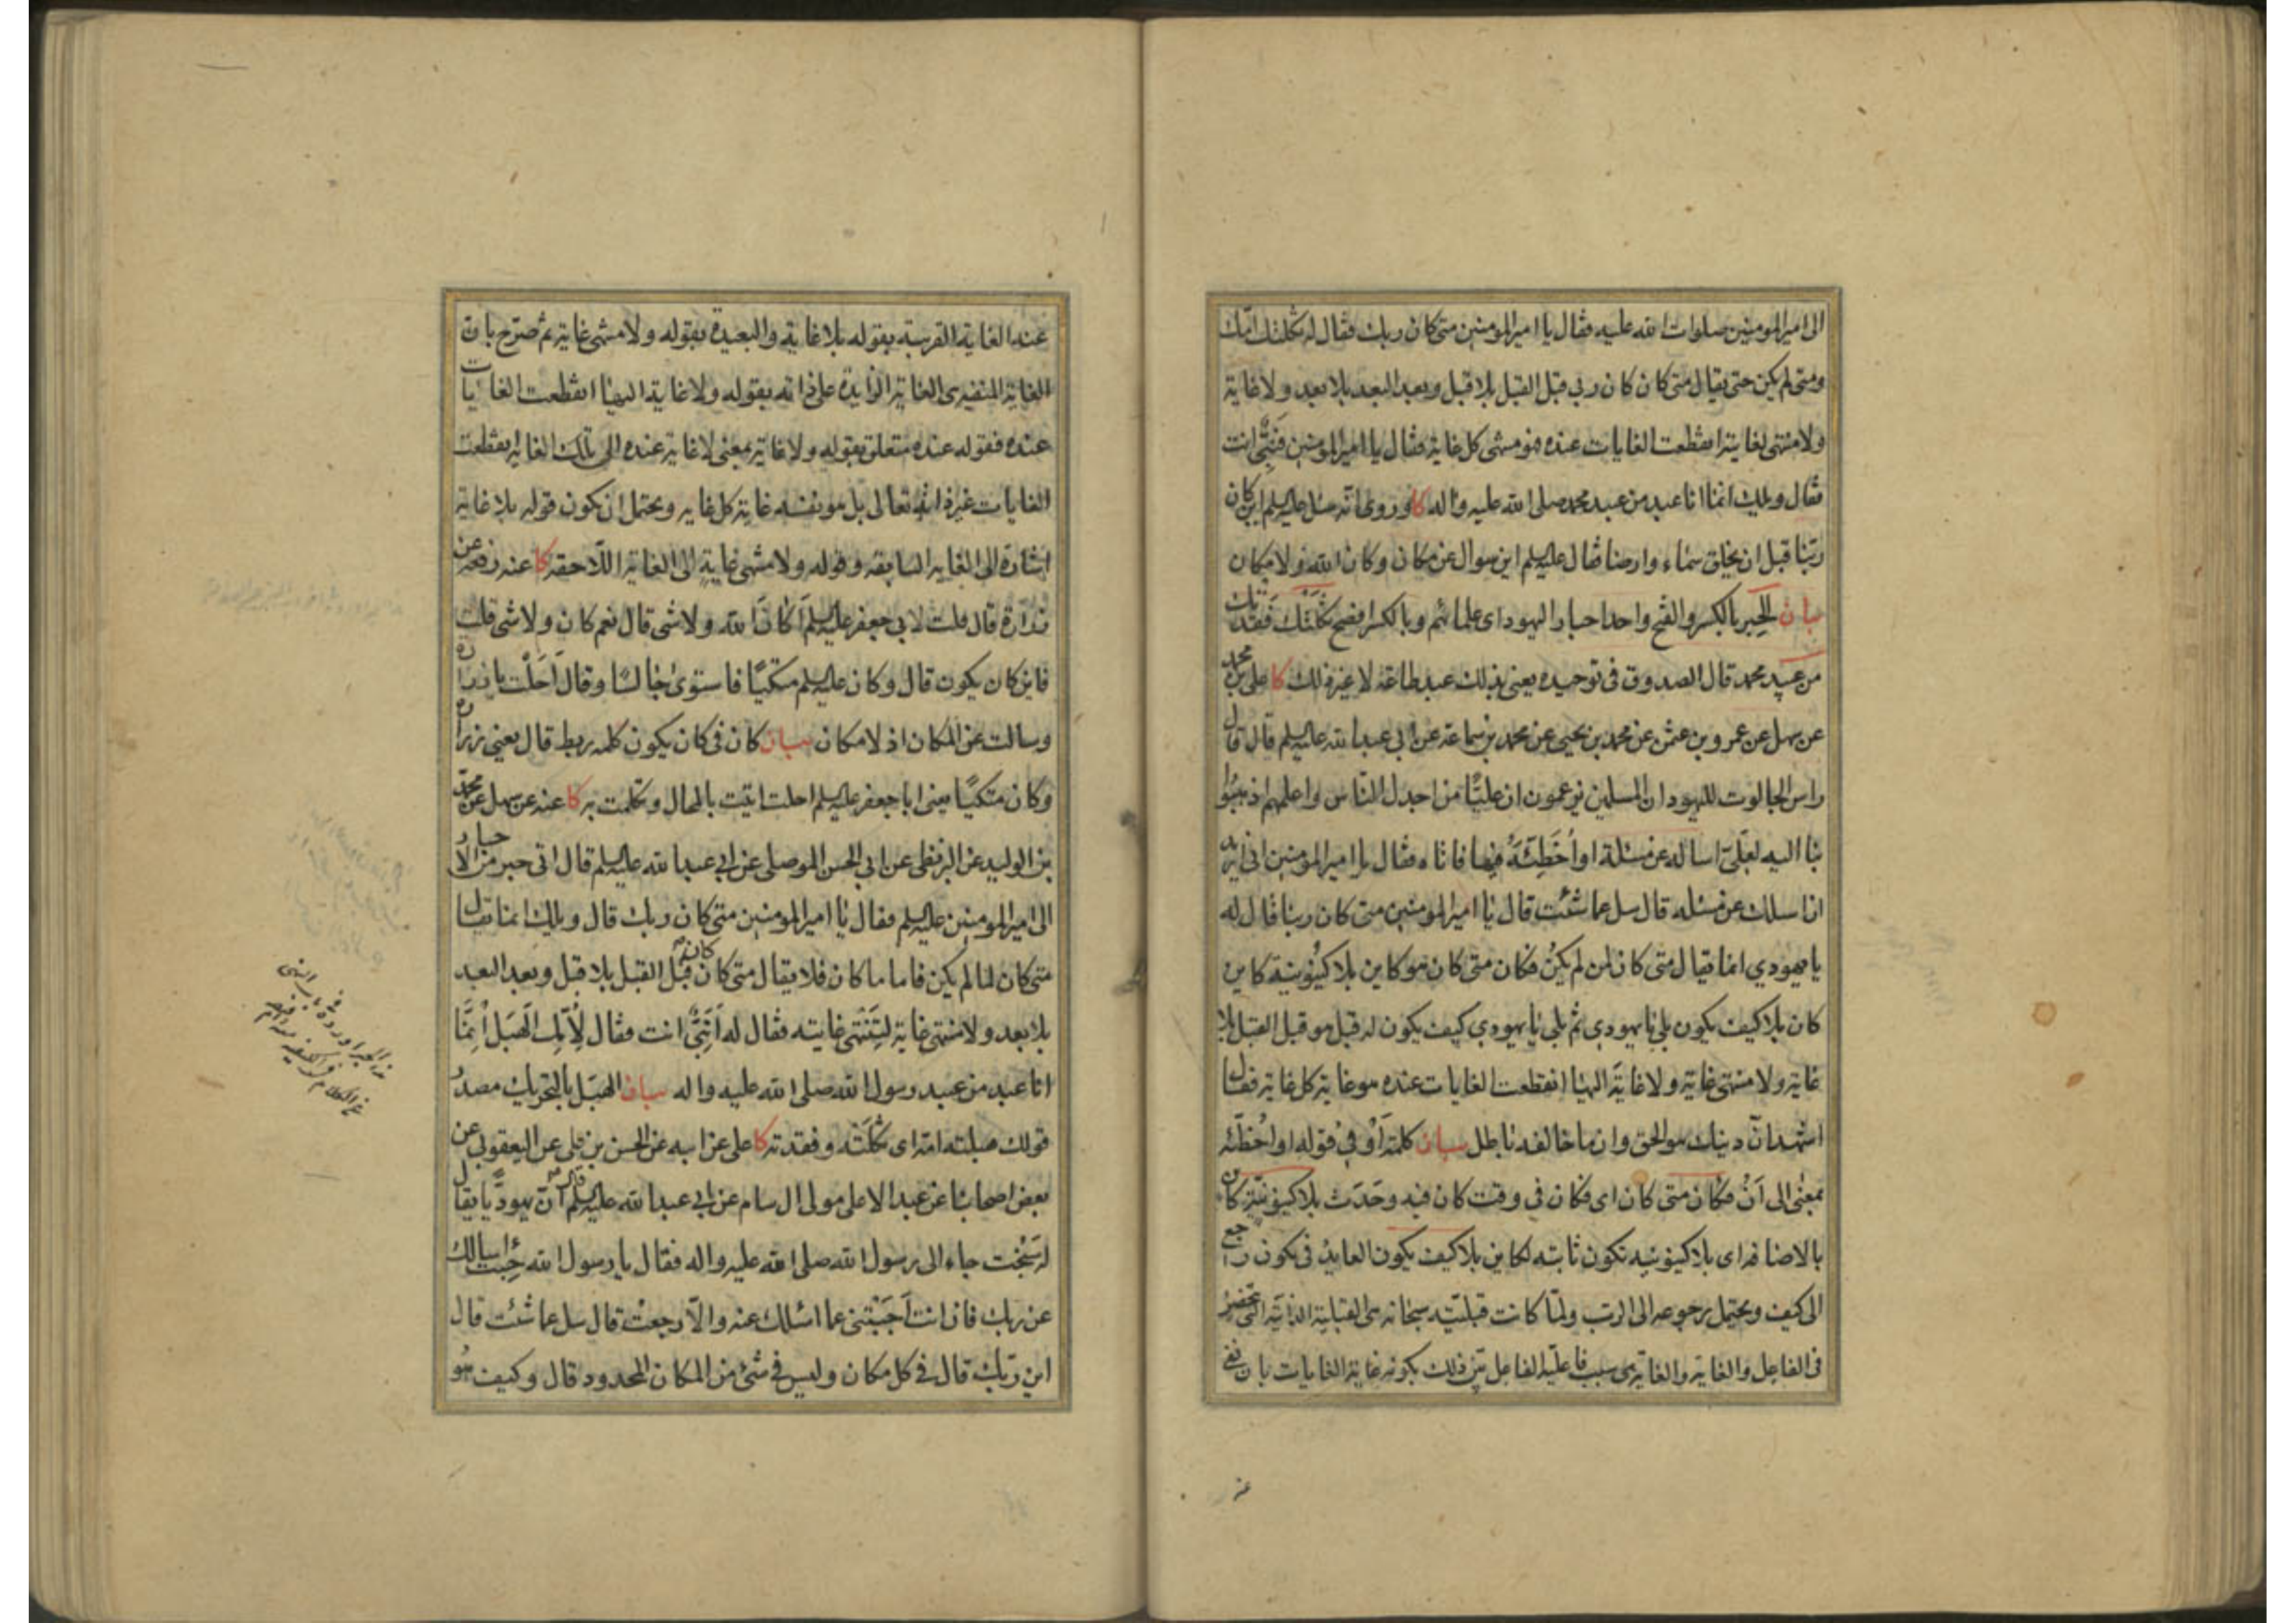 الى امير المومنين صلوات الله عليه فقال يا امير المومنين متى كان ربك فقال له ثكلتك امّك
ومتى لم يكن حتى يقال متى كان كان ربي قبل القبل بلا قبل وبعد البعد بلا بعد ولا غاية
ولا منتهى لغايته انقطعت الغايات عنده فهو منتهى كل غاية فقال يا امير المومنين فنبىٌّ انت
فقال ويلك انما انا عبد من عبيد محمد صلى الله عليه واله كا وروى انّه سئل عليه السلم اين كان
ربّنا قبل ان يخلق سماء وارضا فقال عليه السلم اين سوال عن مكان وكان الله ولا مكان
بيان الحِبر بالكسر والفتح واحد احبار اليهود اى علمائهم وبالكسر افصح ثَكَلَتْكَ فَقَدَتْك
من عبيد محمد قال الصدوق فى توحيده يعنى بذلك عبد طاعة لا غير ذلك كا على بن محمد
عن سهل عن عمرو بن عثمن عن محمد بن يحيى عن محمد بن سماعة عن ابي عبد الله عليه السلم قال قال
راس الجالوت لليهود ان المسلمين يزعمون ان عليًّا من اجدل النّاس واعلمهم اذهبُوا
بنا اليه لعلّى اساله عن مسئلة او اُخَطِّئَهُ فيها فاتاه فقال يا امير المومنين انى اريد
ان اسلك عن مسئله قال سل عما شئت قال يا امير المومنين متى كان ربنا قال له
يا يهودي انما يقال متى كان لمن لم يكنُ فكان متى كان هو كاين بلا كينُونية كاين
كان بلا كيف يكون بلى يا يهودي ثم بلى يا يهودي كيف يكون له قبل هو قبل القبل بلا
غاية ولا منتهى غاية ولا غايةَ اليها انقطعت الغايات عنده هو غاية كل غاية فقال
اشهد انّ دينك هو الحق وان ما خالفه باطل بيان كلمة اَوْ فِيْ قوله او اُخطّئه
بمعنى الى اَنْ فكان متى كان اى فكان في وقت كان فيه وحَدَث بلا كينونيّة كاين
بالاضافة اى بلا كينونيه تكون ثابته لكاين بلا كيف يكون العايدُ فى يكون راجع
الى كيف ويحتمل رجوعه الى الرب ولمّا كانت قبليّته سبحانه هى القبلية الذاتيّة التى تنحصر
فى الفاعل والغاية والغاية هى سبب فاعليّة الفاعل بيّن ذلك بكونه غاية الغايات بان نفى
عند
عنه الغاية القريبة بقوله بلا غاية والبعيدة بقوله ولا منتهى غاية ثم صرّح بان
الغاية المنفية هى الغاية الزايدة على ذاته بقوله ولا غاية اليها انقطعت الغايات
عنده فقوله عنده متعلق بقوله ولا غاية بمعنى لا غاية عنده الى تلك الغاية انقطعت
الغايات غير ذاته تعالى بل هو بنفسه غاية كل غاية ويحتمل ان يكون قوله بلا غاية
اشارة الى الغاية السابقه وقوله ولا منتهى غايةٍ الى الغاية اللّاحقة كا عنه رفعه عن
زرارة قال قلت لابي جعفر عليه السلم اَكانَ الله ولا شى قال نعم كان ولا شى قلت
فاين كان يكون قال وكان عليه السلم متكئًا فاستوى جالسًا وقال اَحَلْت يا زرارة
وسالت عن المكان اذ لا مكان بيان كان فى كان يكون كلمه ربط قال يعنى زرارة
وكان متكئًا يعنى ابا جعفر عليه السلم احلت اتيت بالمحال وتكلمت به كا عنه عن سهل عن محمّد
بن الوليد عن البزنطى عن ابي الحسن الموصلى عن ابي عبد الله عليه السلم قال اتى حبر من الاحبار
الى امير المومنين عليه السلم فقال يا امير المومنين متى كان ربك قال ويلك انما يقال
متى كان لما لم يكن فاما ما كان فلا يقال متى كان كان قبل القبل بلا قبل وبعد البعد
بلا بعد ولا منتهى غاية لتَنْتهى غايته فقال له اَنَبِىٌّ انت فقال لِأُمِّك الهَبَل اِنمَّا
انا عبد من عبيد رسول الله صلى الله عليه واله بيان الهبَل بالتحريك مصدرُ
قولك هبلته امّه اى ثكلَتْه وفقدته كا على عن ابيه عن الحسن بن على عن اليعقوبي عن
بعض اصحابنا عن عبد الاعلى مولى ال سام عن ابي عبد الله عليه السلم قال انّ يهوديًّا يقال
له سُبُخت جاء الى رسول الله صلى الله عليه واله فقال يا رسول الله جئت اسالك
عن ربك فان انت اَجَبْتنى عما اسئلك عنه والّا رجعت قال سل عما شئت قال
اين ربّك قال فى كل مكان وليس فى شئ من المكان المحدود قال وكيف هُو